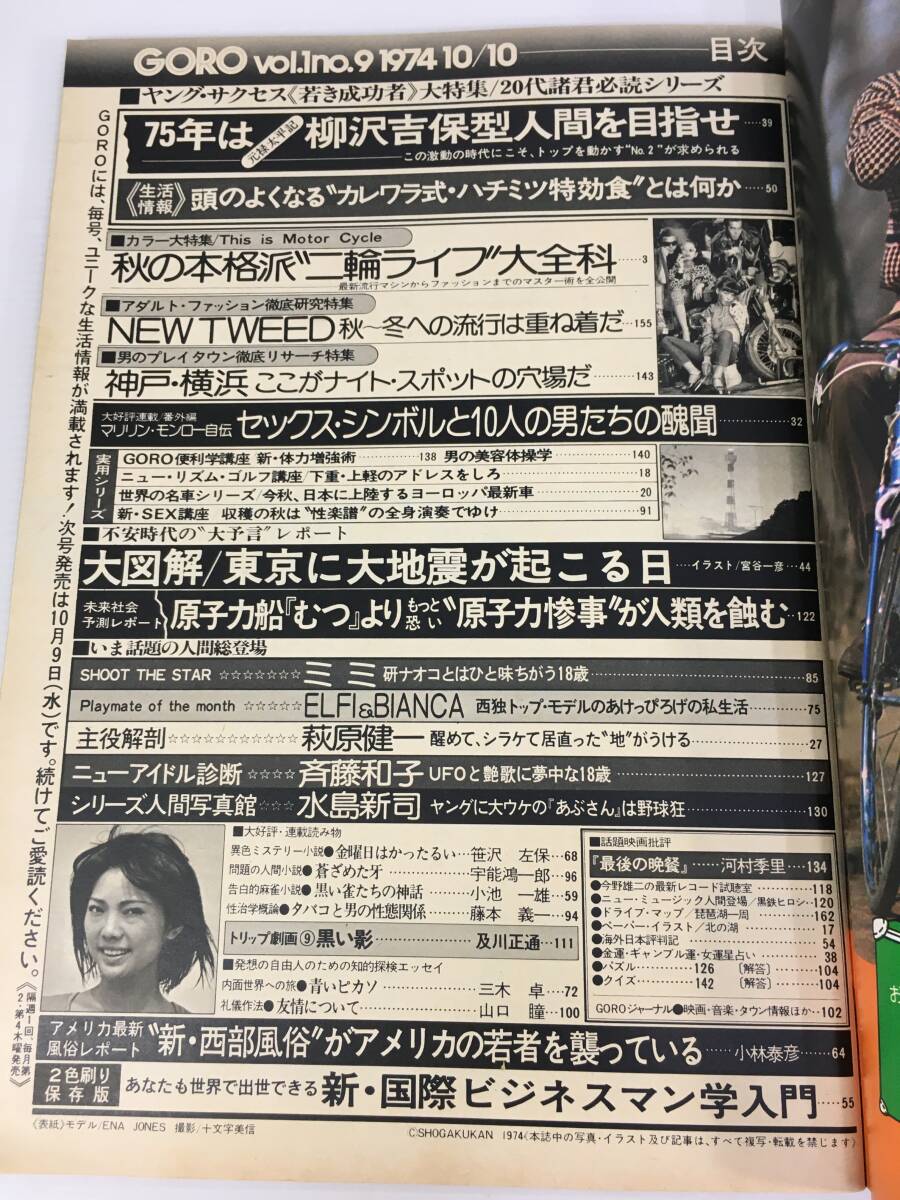 GORO vol.1no.9 1974 10/10 目次
■ヤング・サクセス《若き成功者》大特集/20代諸君必読シリーズ
75年は元禄太平記柳沢吉保型人間を目指せ……39
この激動の時代にこそ、トップを動かす“No.2”が求められる
《生活情報》頭のよくなる“カレワラ式・ハチミツ特効食”とは何か……50
■カラー大特集/This is Motor Cycle
秋の本格派“二輪ライフ”大全科……3
最新流行マシンからファッションまでのマスター術を全公開
■アダルト・ファッション徹底研究特集
NEW TWEED 秋〜冬への流行は重ね着だ…155
■男のプレイタウン徹底リサーチ特集
神戸・横浜 ここがナイト・スポットの穴場だ……143
大好評連載/番外編
マリリン・モンロー自伝 セックス・シンボルと10人の男たちの醜聞……32
実用シリーズ
GORO便利学講座 新・体力増強術……138 男の美容体操学……140
ニュー・リズム・ゴルフ講座/下重・上軽のアドレスをしろ……18
世界の名車シリーズ/今秋、日本に上陸するヨーロッパ最新車……20
新・SEX講座 収穫の秋は“性楽譜”の全身演奏でゆけ……91
■不安時代の“大予言”レポート
大図解/東京に大地震が起こる日……イラスト/宮谷一彦…44
未来社会予測レポート 原子力船『むつ』よりもっと恐い“原子力惨事”が人類を蝕む…122
■いま話題の人間総登場
SHOOT THE STAR ☆☆☆☆☆☆☆ ミミ 研ナオコとはひと味ちがう18歳……85
Playmate of the month ☆☆☆☆☆ ELFI&BIANCA 西独トップ・モデルのあけっぴろげの私生活……75
主役解剖☆☆☆☆☆☆☆☆☆☆☆ 萩原健一 醒めて、シラケて居直った“地”がうける……27
ニューアイドル診断 ☆☆☆☆ 斉藤和子 UFOと艶歌に夢中な18歳……127
シリーズ人間写真館 ☆☆☆ 水島新司 ヤングに大ウケの『あぶさん』は野球狂……130
■大好評・連載読み物
異色ミステリー小説●金曜日はかったるい…笹沢 左保…68
問題の人間小説●蒼ざめた牙……宇能鴻一郎…96
告白的麻雀小説●黒い雀たちの神話……小池 一雄…59
性治学概論●タバコと男の性態関係……藤本 義一…94
トリップ劇画⑨黒い影……及川正通…111
■発想の自由人のための知的探検エッセイ
内面世界への旅●青いピカソ……三木 卓…72
礼儀作法●友情について……山口 瞳…100
■話題映画批評
『最後の晩餐』……河村季里…134
●今野雄二の最新レコード試聴室……118
●ニュー・ミュージック人間登場/黒鉄ヒロシ…120
●ドライブ・マップ/琵琶湖一周……162
●ペーパー・イラスト/北の湖……17
●海外日本評判記……54
●金運・ギャンブル運・女運星占い……38
●パズル……126 〔解答〕……104
●クイズ……142 〔解答〕……104
GOROジャーナル●映画・音楽・タウン情報ほか…102
アメリカ最新風俗レポート “新・西部風俗”がアメリカの若者を襲っている……小林泰彦……64
2色刷り保存版 あなたも世界で出世できる 新・国際ビジネスマン学入門……55
《表紙》モデル/ENA JONES 撮影/十文字美信
ⒸSHOGAKUKAN 1974《本誌中の写真・イラスト及び記事は、すべて複写・転載を禁じます》
GOROには、毎号、ユニークな生活情報が満載されます!次号発売は10月9日(水)です。続けてご愛読ください。《隔週1回、毎月第2・第4木曜発売》
お